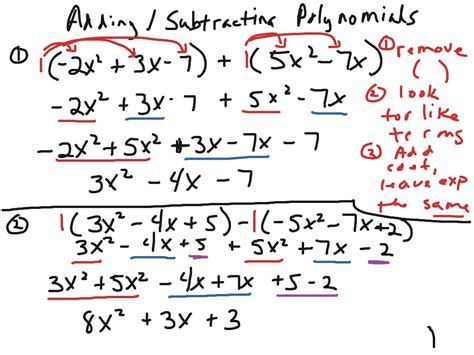 Adding / Subtracting Polynomials
① 1(-2x² + 3x - 7) + 1(5x² - 7x)
-2x² + 3x - 7 + 5x² - 7x
-2x² + 5x² + 3x - 7x - 7
3x² - 4x - 7
① remove
( )
② look
for like
terms
③ Add
coef,
leave exp
the same
② 1(3x² - 4x + 5) - 1(-5x² - 7x + 2)
3x² - 4x + 5 + 5x² + 7x - 2
3x² + 5x² - 4x + 7x + 5 - 2
8x² + 3x + 3